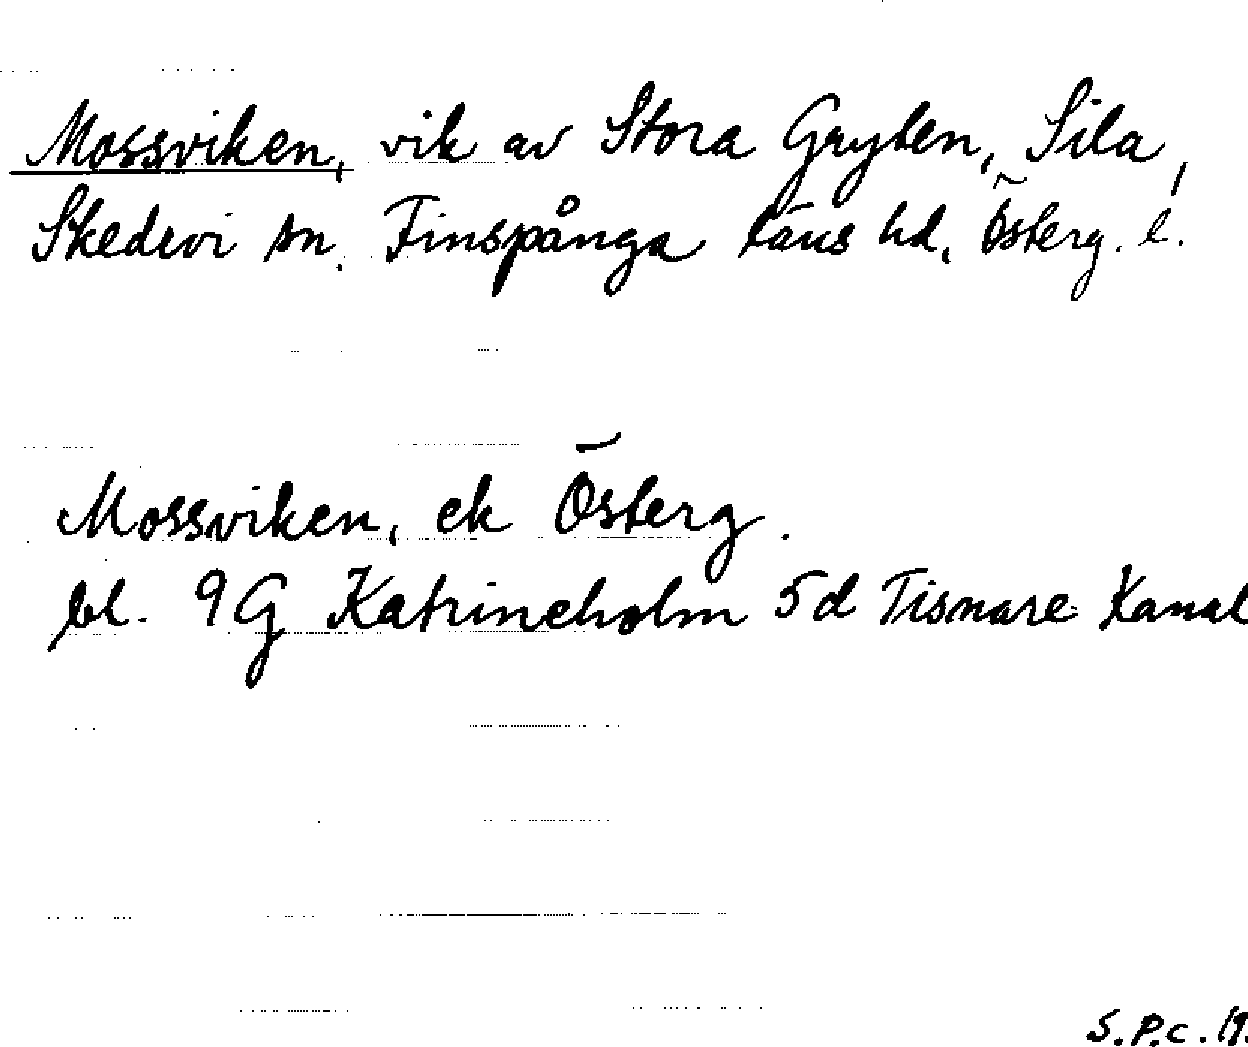 Mossviken, vik av Stora Gryten, Sila,
Skedevi sn. Finspånga läns hd, Österg. l.
Mossviken, ek Österg.
bl. 9G Katrineholm 5d Tisnare Kanal
S.P.c. 19